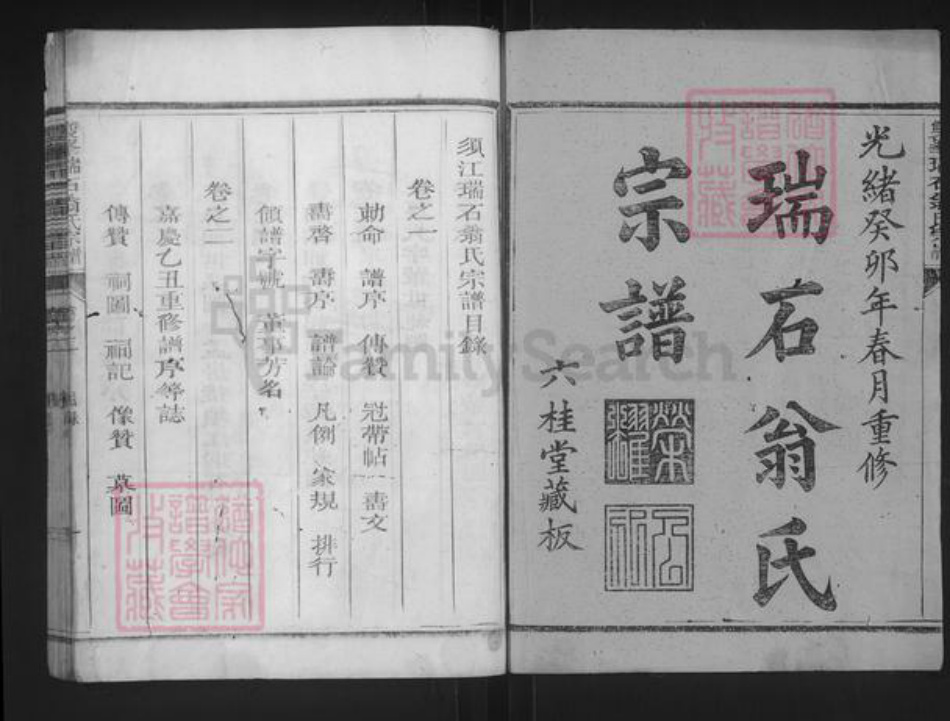 光緒癸卯年春月重修
瑞石翁氏
宗譜
六桂堂藏板
須江瑞石翁氏宗譜目錄
卷之一
勅命 譜序 傳贊 冠帶帖 壽文
壽啓 壽序 譜論 凡例 家規 排行
領譜字號 董事芳名
卷之二
嘉慶乙丑重修譜序等誌
傳贊 祠圖 祠記 像贊 墓圖
FamilySearch